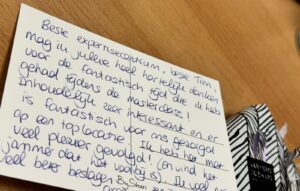 Beste expertisecentrum, beste Tim,
mag ik jullie heel hartelijk danken
voor de fantastisch tijd die ik heb
gehad tijdens de masterclass!
Inhoudelijk zeer interessant en er
is fantastisch voor ons gezorgd
op een top locatie. Ik heb het met
veel plezier gevolgd! (en vind het
jammer dat het voorbij is). Ik voel
veel beter beslagen